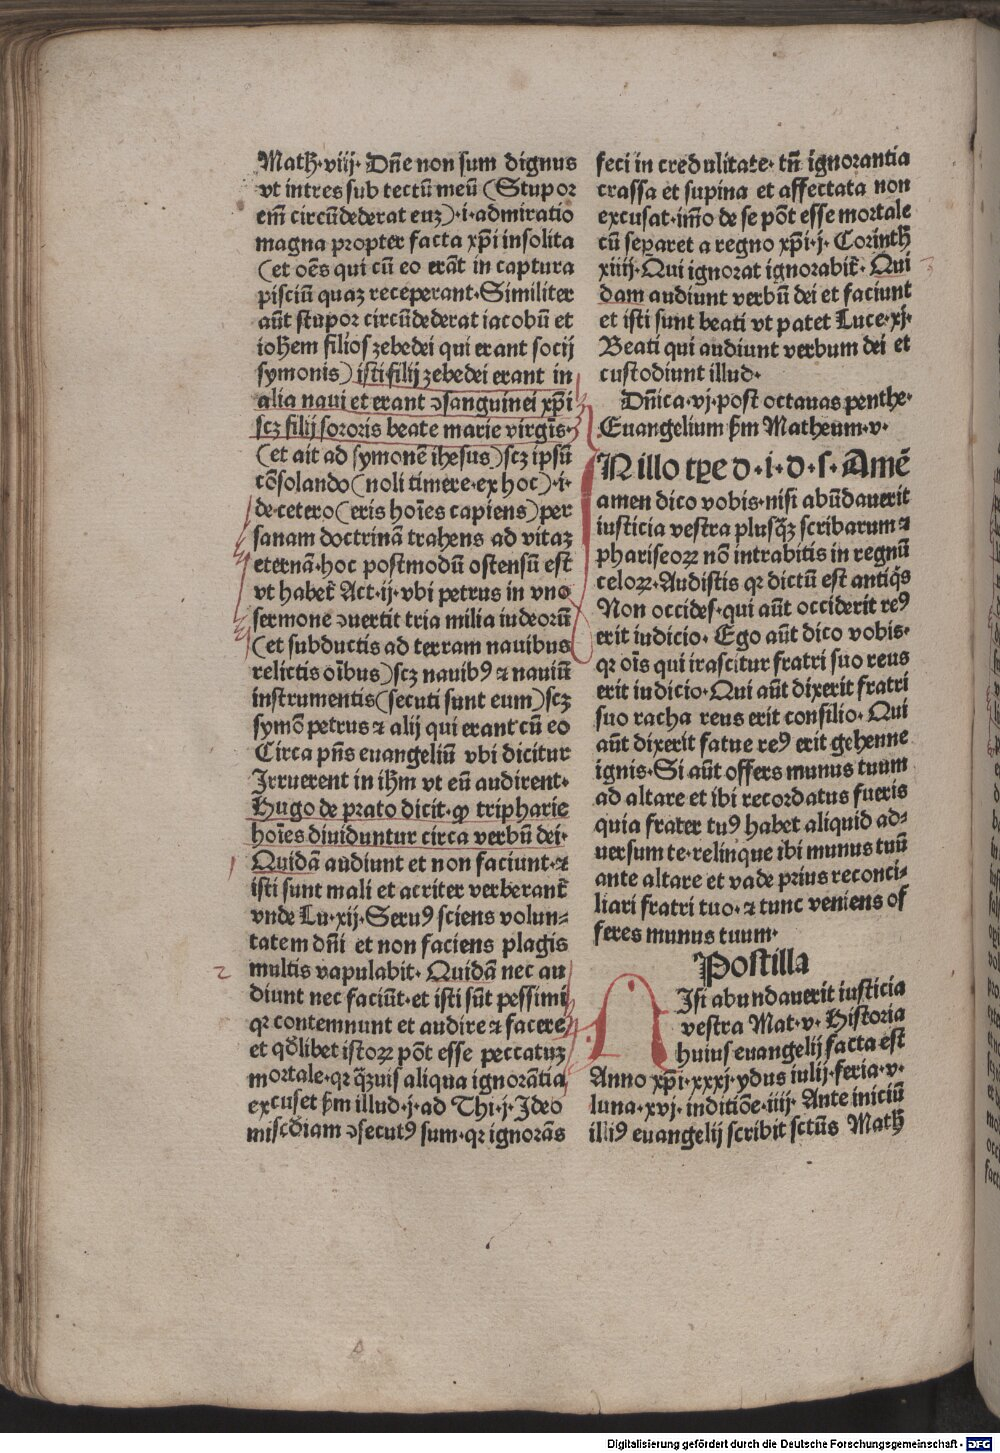 Math̄·viij· Dn̄e non sum dignus
vt intres sub tectū meū (Stupor
em̄ circūdederat euꝫ)·i·admiratio
magna propter facta xp̄i insolita
(et oēs qui cū eo erāt in captura
pisciū quaꝫ receperant·Similiter
aūt stupor circūdederat iacobū et
iohem filios zebedei qui erant socij
symonis) isti filij zebedei erant in
alia naui et erant ꝯsanguinei xp̄i
scꝫ filij sororis beate marie virgīs·
(et ait ad symonē ihesus) scꝫ ipsū
cōsolando (noli timere·ex hoc)·i·
de cetero (eris hoīes capiens) per
sanam doctrinā trahens ad vitaꝫ
eternā·hoc postmodū ostensū est
vt habet̄ Act·ij·vbi petrus in vno
sermone ꝯuertit tria milia iudeorū
(et subductis ad terram nauibus
relictis oībus) scꝫ nauibꝰ ⁊ nauiū
instrumentis (secuti sunt eum) scꝫ
symō petrus ⁊ alij qui erant cū eo
Circa pn̄s euangeliū vbi dicitur
Irruerent in ih̄m vt eū audirent·
Hugo de prato dicit·ꝙ tripharie
hoīes diuiduntur circa verbū dei·
Quidā audiunt et non faciunt·⁊
isti sunt mali et acriter verberant̄
vnde Lu·xij·Seruꝰ sciens volun⸗
tatem dn̄i et non faciens plagis
multis vapulabit· Quidā nec au
diunt nec faciūt·et isti sūt pessimi
qꝛ contemnunt et audire ⁊ facere
et qd̄libet istoꝝ pōt esse peccatuꝫ
mortale·qꝛ qͣꝫuis aliqua ignorātia
excuset ẜm illud·j·ad Thi·j·Ideo
miscd̄iam ꝯsecutꝰ sum·qꝛ ignorās
feci in credulitate· tn̄ ignorantia
crassa et supina et affectata non
excusat·im̄o de se pōt esse mortale
cū separet a regno xp̄i·j· Corinth̄
xiiij·Qui ignorat ignorabit̄· Qui
dam audiunt verbū dei et faciunt
et isti sunt beati vt patet Luce·xj·
Beati qui audiunt verbum dei et
custodiunt illud·
Dn̄ica·vj·post octauas penthe·
Euangelium ẜm Matheum·v·
N illo tꝑe d·i·d·s·Amē
amen dico vobis·nisi abūdauerit
iusticia vestra plusqͣꝫ scribarum ⁊
phariseoꝝ nō intrabitis in regnū
celoꝝ·Audistis qꝛ dictū est antiqͥs
Non occides·qui aūt occiderit reꝰ
erit iudicio· Ego aūt dico vobis·
qꝛ oīs qui irascitur fratri suo reus
erit iudicio·Qui aūt dixerit fratri
suo racha reus erit consilio· Qui
aūt dixerit fatue reꝰ erit gehenne
ignis·Si aūt offers munus tuum
ad altare et ibi recordatus fueris
quia frater tuꝰ habet aliquid ad⸗
uersum te·relinque ibi munus tuū
ante altare et vade prius reconci⸗
liari fratri tuo·⁊ tunc veniens of
feres munus tuum·
Postilla
Nisi abundauerit iusticia
vestra Mat·v· Historia
huius euangelij facta est
Anno xp̄i·xxxj·ydus iulij·feria·v·
luna·xvj· inditiōe·iiij· Ante iniciū
illiꝰ euangelij scribit sctūs Math̄
Digitalisierung gefördert durch die Deutsche Forschungsgemeinschaft - DFG